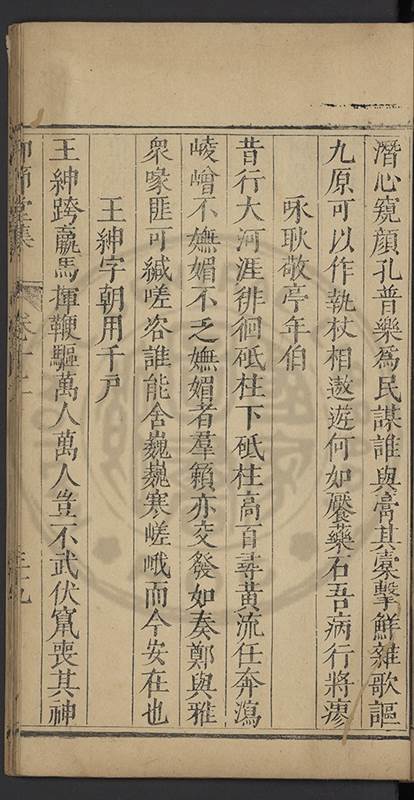 潛心窺顔孔普樂爲民謀誰與膏其橐擊鮮雜歌謳
九原可以作執杖相遨遊何如饜藥石吾病行將瘳
咏耿敬亭年伯
昔行大河涯徘徊砥柱下砥柱高百尋黃流任奔瀉
崚嶒不嫵媚不乏嫵媚者羣籟亦交發如奏鄭與雅
衆喙匪可緘嗟咨誰能舍巍巍寒嵯峨而今安在也
王紳字朝用千戶
王紳跨羸馬揮鞭驅萬人萬人豈不武伏竄喪其神
節堂集
卷十二